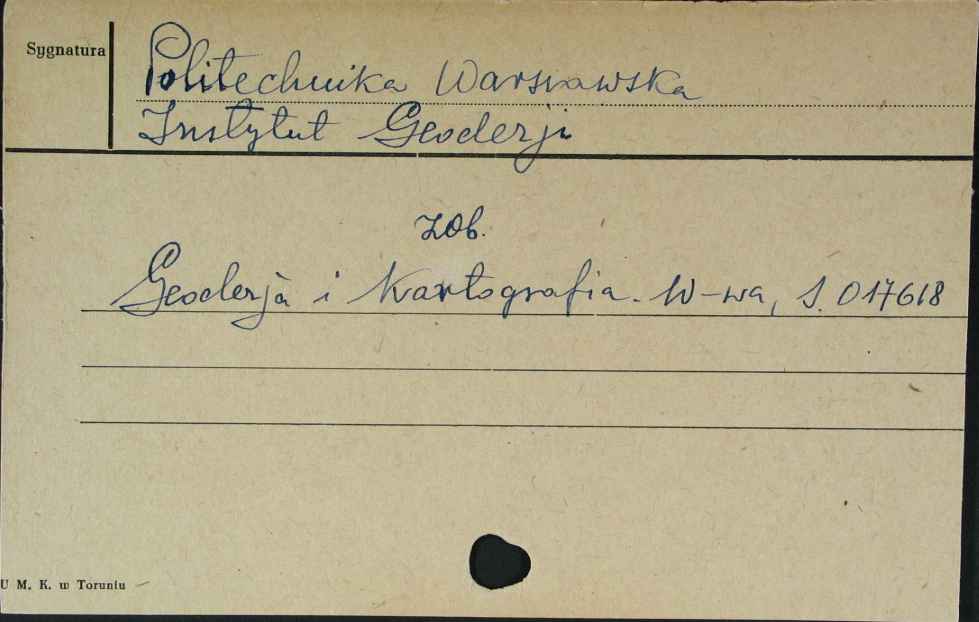 Sygnatura
Politechnika Warszawska
Instytut Geodezji
zob.
Geodezja i Kartografia. W-wa, S. 017618
U M. K. w Toruniu